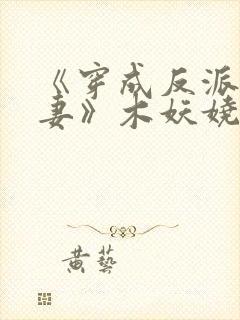 《穿成反派
妻》木妖娆
黄藝